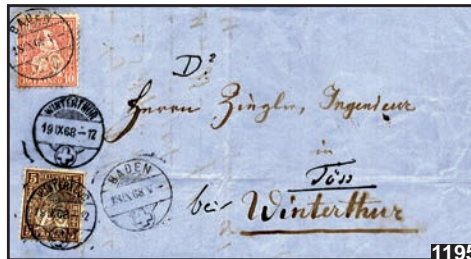 BADEN
10
WINTERTHUR
19 IX 68 – 12
5
WINTERTHUR
19 IX 68 – 12
BADEN
19 IX 68 V
D?
Herrn Ziegler, Ingenieur
in
Töss
bei Winterthur
1195